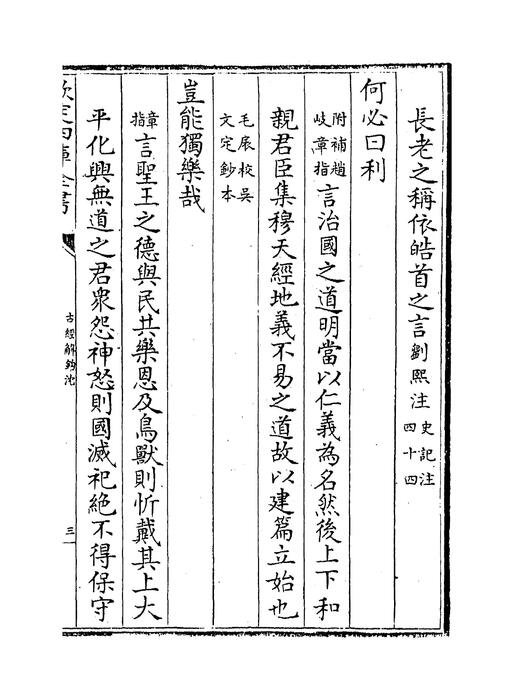 長老之稱依皓首之言劉熙注史記注四十四
何必曰利
附補趙岐章指言治國之道明當以仁義為名然後上下和
親君臣集穆天經地義不易之道故以建篇立始也
毛扆校吳文定鈔本
豈能獨樂哉
章指言聖王之德與民共樂恩及鳥獸則忻戴其上大
平化興無道之君衆怨神怒則國滅祀絕不得保守
欽定四庫全書
古經解鉤沈
三